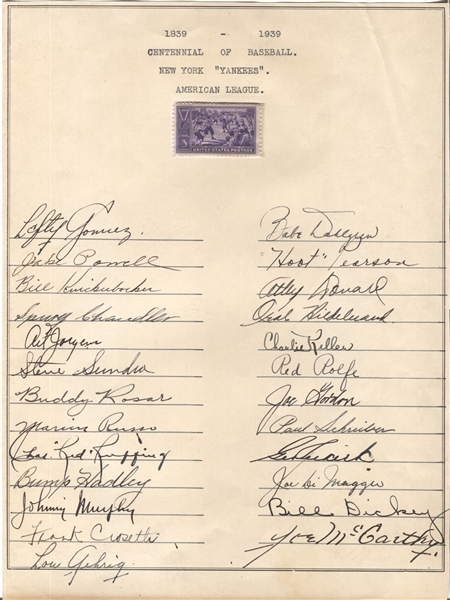 1839 - 1939
CENTENNIAL OF BASEBALL.
NEW YORK "YANKEES".
AMERICAN LEAGUE.
UNITED STATES POSTAGE
Lefty Gomez
Jake Powell
Bill Knickerbocker
Spurg Chandler
Art Jorgens
Steve Sundra
Buddy Rosar
Marius Russo
Chas "Red" Ruffing
Bump Hadley
Johnny Murphy
Frank Crosetti
Lou Gehrig
Babe Dahlgren
"Hoot" Pearson
Atley Donald
Oral Hildebrand
Charlie Keller
Red Rolfe
Joe Gordon
Paul Schreiber
Joe Di Maggio
Bill Dickey
Joe McCarthy